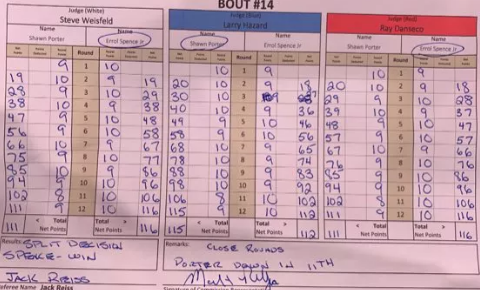 BOUT #14
Judge (White) Judge (Blue) Judge (Red)
Steve Weisfeld Larry Hazard Ray Danseco
Name Name Name Name Name Name
Shawn Porter Errol Spence Jr Shawn Porter Errol Spence Jr Shawn Porter Errol Spence Jr
Round Round Round
9 1 10 10 1 9 10 1 9
19 10 2 9 19 20 10 2 9 18 20 10 2 9 18
28 9 3 10 29 30 10 3 9 27 29 9 3 10 28
38 10 4 9 38 40 10 4 9 36 39 10 4 9 37
47 9 5 10 48 49 9 5 10 46 48 9 5 10 47
56 9 6 10 58 58 9 6 10 56 57 9 6 10 57
66 10 7 9 67 68 10 7 9 65 67 10 7 9 66
75 9 8 10 77 78 10 8 9 74 76 9 8 10 76
85 10 9 9 86 88 10 9 9 83 85 9 9 10 86
94 9 10 10 96 98 10 10 9 92 94 9 10 10 96
102 8 11 10 106 106 8 11 10 102 102 8 11 10 106
111 9 12 10 116 115 9 12 10 112 111 9 12 10 116
111 < Total Net Points Total > Net Points 116 115 < Total Net Points Total > Net Points 112 111 < Total Net Points Total > Net Points 116
Results: SPLIT DECISION Remarks: CLOSE ROUNDS
SPENCE - WIN PORTER DOWN IN 11TH
JACK REISS
Referee Name Jack Reiss